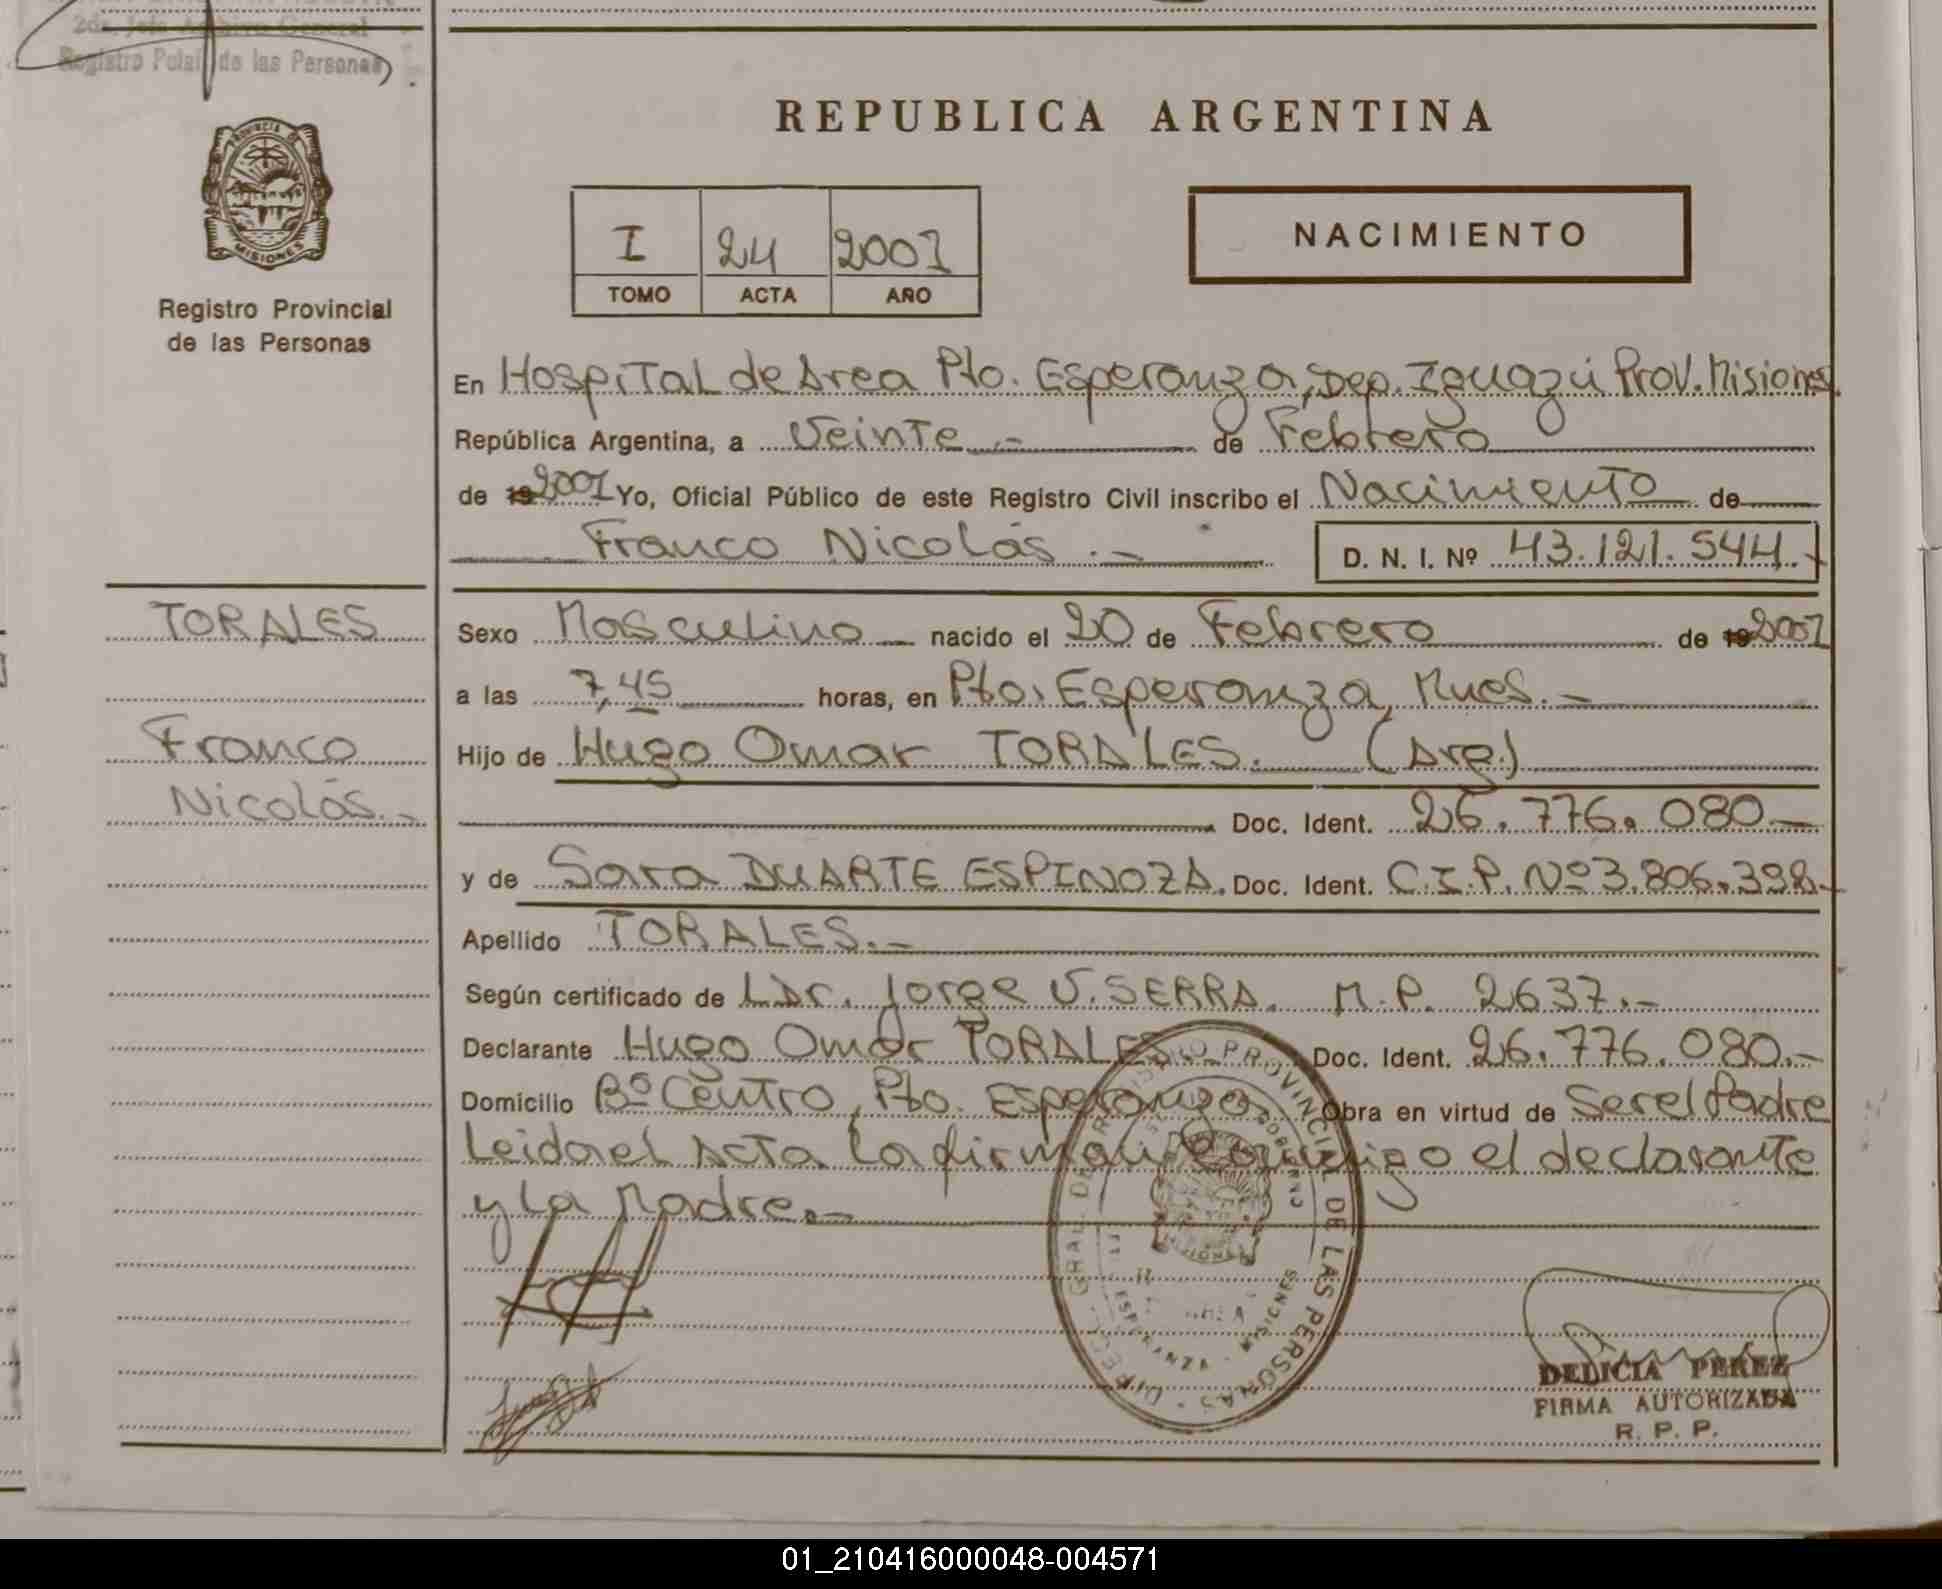 2do. Jefe Archivo General
Registro Pcial. de las Personas
PROVINCIA DE
MISIONES
Registro Provincial
de las Personas
TORALES
Franco
Nicolás.-
REPUBLICA ARGENTINA
I 24 2001
TOMO ACTA AÑO
NACIMIENTO
En Hospital de Area Pto. Esperanza, Dep. Iguazú Prov. Misiones.
República Argentina, a Veinte.- de Febrero
de 19 2001 Yo, Oficial Público de este Registro Civil inscribo el Nacimiento de
Franco Nicolás.- D. N. I. Nº 43.121.544.-
Sexo Masculino nacido el 20 de Febrero de 19 2001
a las 7,45 horas, en Pto. Esperanza, Mnes.-
Hijo de Hugo Omar TORALES. (Arg.)
Doc. Ident. 26.776.080.-
y de Sara DUARTE ESPINOZA. Doc. Ident. C.I.P. Nº 3.806.398.-
Apellido TORALES.-
Según certificado de Dr. Jorge V. SERRA. M.P. 2637.-
Declarante Hugo Omar TORALES Doc. Ident. 26.776.080.-
Domicilio Bº Centro, Pto. Esperanza Obra en virtud de Ser el Padre
Leida el Acta la firman conmigo el declarante
y la Madre.-
PROVINCIAL DE LAS PERSONAS
ESPERANZA - MISIONES
DELICIA PEREZ
FIRMA AUTORIZADA
R. P. P.
01_210416000048-004571